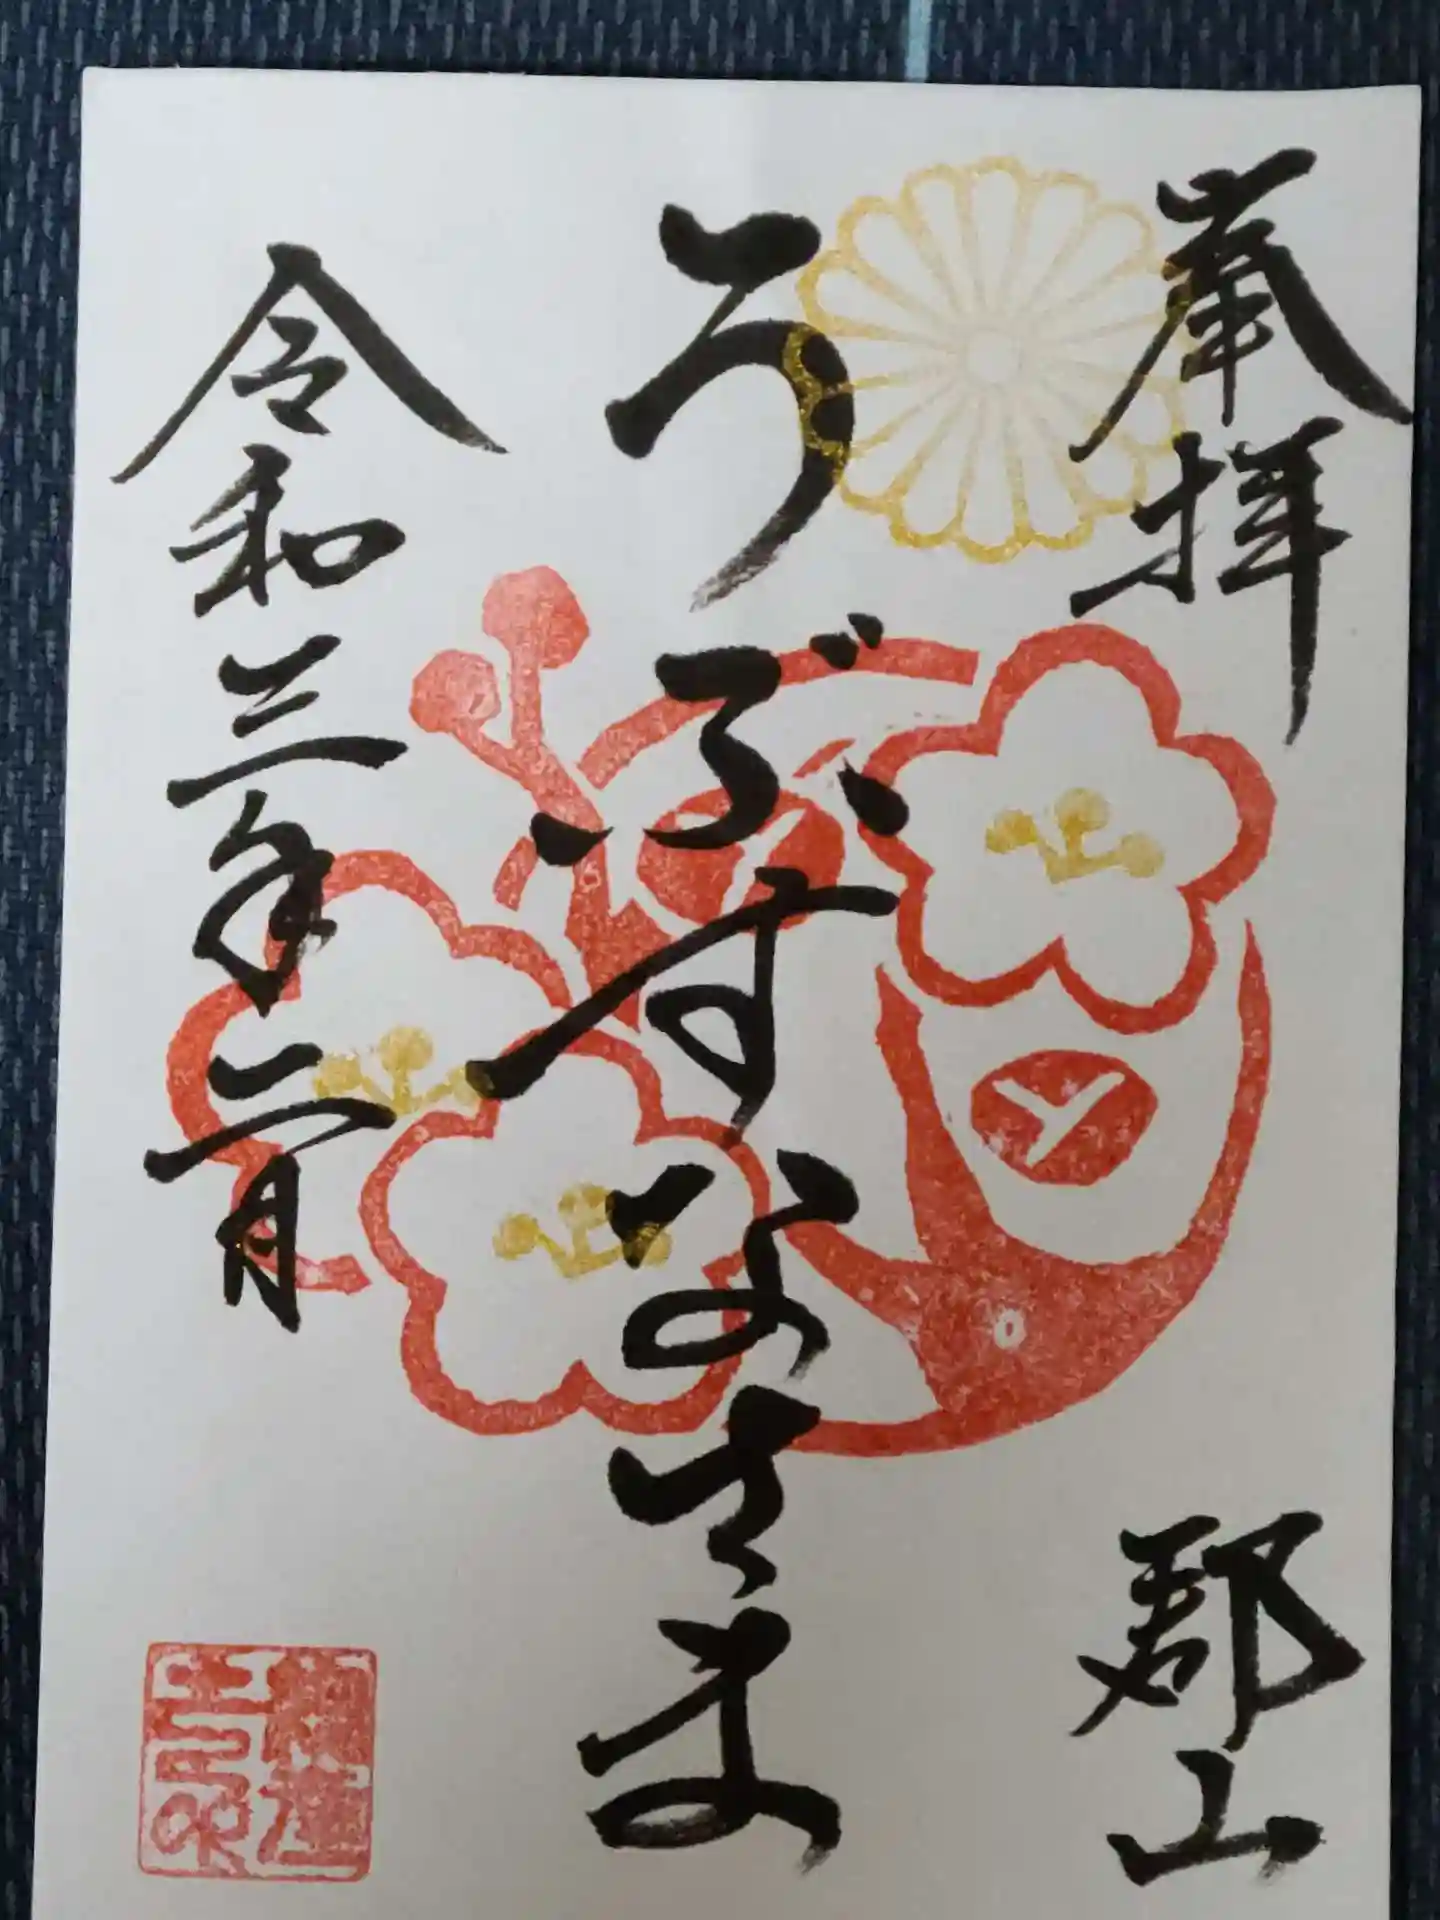 奉拝
郡山
うぶすなさま
令和三年二月